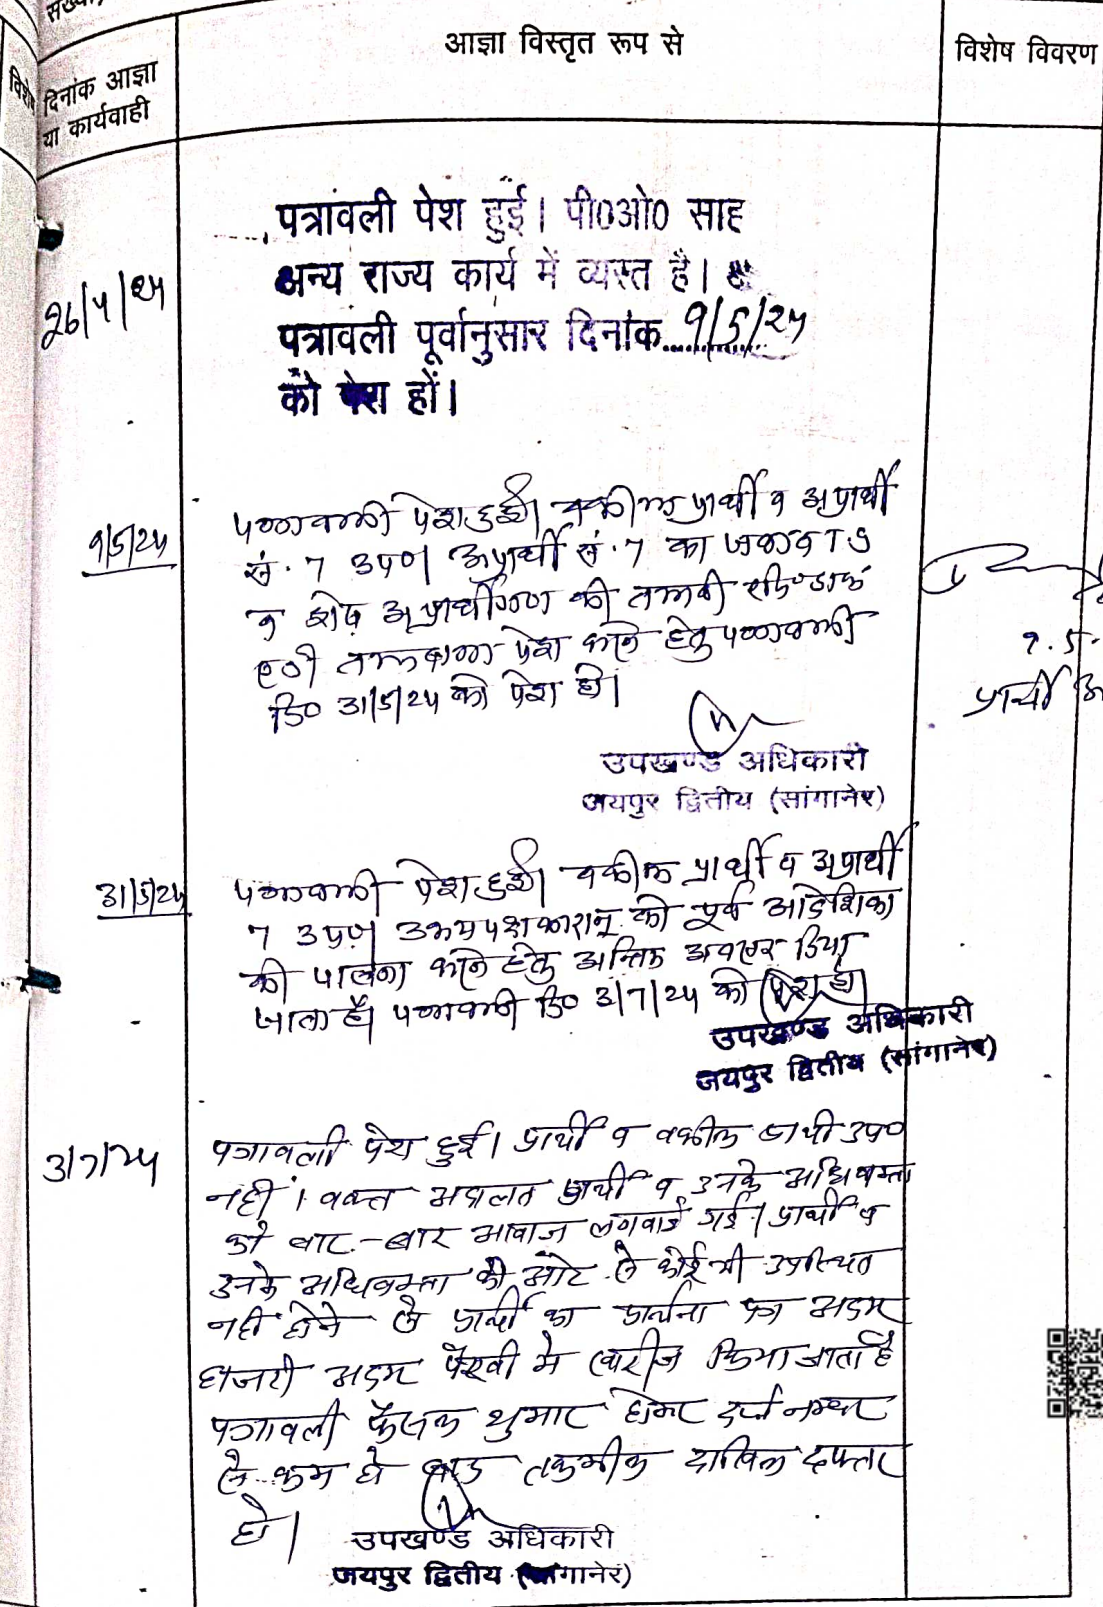 संख्या,
विशेष
दिनांक आज्ञा
या कार्यवाही
आज्ञा विस्तृत रूप से
विशेष विवरण
26/4/24
पत्रावली पेश हुई। पी0ओ0 साह
अन्य राज्य कार्य में व्यस्त है।
पत्रावली पूर्वानुसार दिनांक 9/5/24
को पेश हों।
9/5/24
पत्रावली पेश हुई। वकील प्रार्थी व अप्रार्थी
सं. 7 उप0। अप्रार्थी सं. 7 का जवाब TS
व शेष अप्रार्थीगण की तलबी रजि0
तलबाना पेश करने हेतु पत्रावली
दि0 31/5/24 को पेश हो।
9.5.
प्रार्थी
उपखण्ड अधिकारी
जयपुर द्वितीय (सांगानेर)
31/5/24
पत्रावली पेश हुई। वकील प्रार्थी व अप्रार्थी
7 उप0। उभयपक्षकारान् को पूर्व आदेशिका
की पालना करने हेतु अन्तिम अवसर दिया
जाता है। पत्रावली दि0 3/7/24 को पेश हो।
उपखण्ड अधिकारी
जयपुर द्वितीय (सांगानेर)
3/7/24
पत्रावली पेश हुई। प्रार्थी व वकील प्रार्थी उप0
नहीं। वक्त अदालत प्रार्थी व उनके अधिवक्ता
को बार-बार आवाज लगवाई गई। प्रार्थी व
उनके अधिवक्ता की ओर से कोई भी उपस्थित
नहीं होने से प्रार्थी का प्रार्थना पत्र अदम
हाजरी अदम पैरवी में खारीज किया जाता है
पत्रावली फैसल शुमार होकर दर्ज नम्बर
से कम हो बाद तकमील दाखिल दफ्तर
हो।
उपखण्ड अधिकारी
जयपुर द्वितीय (सांगानेर)